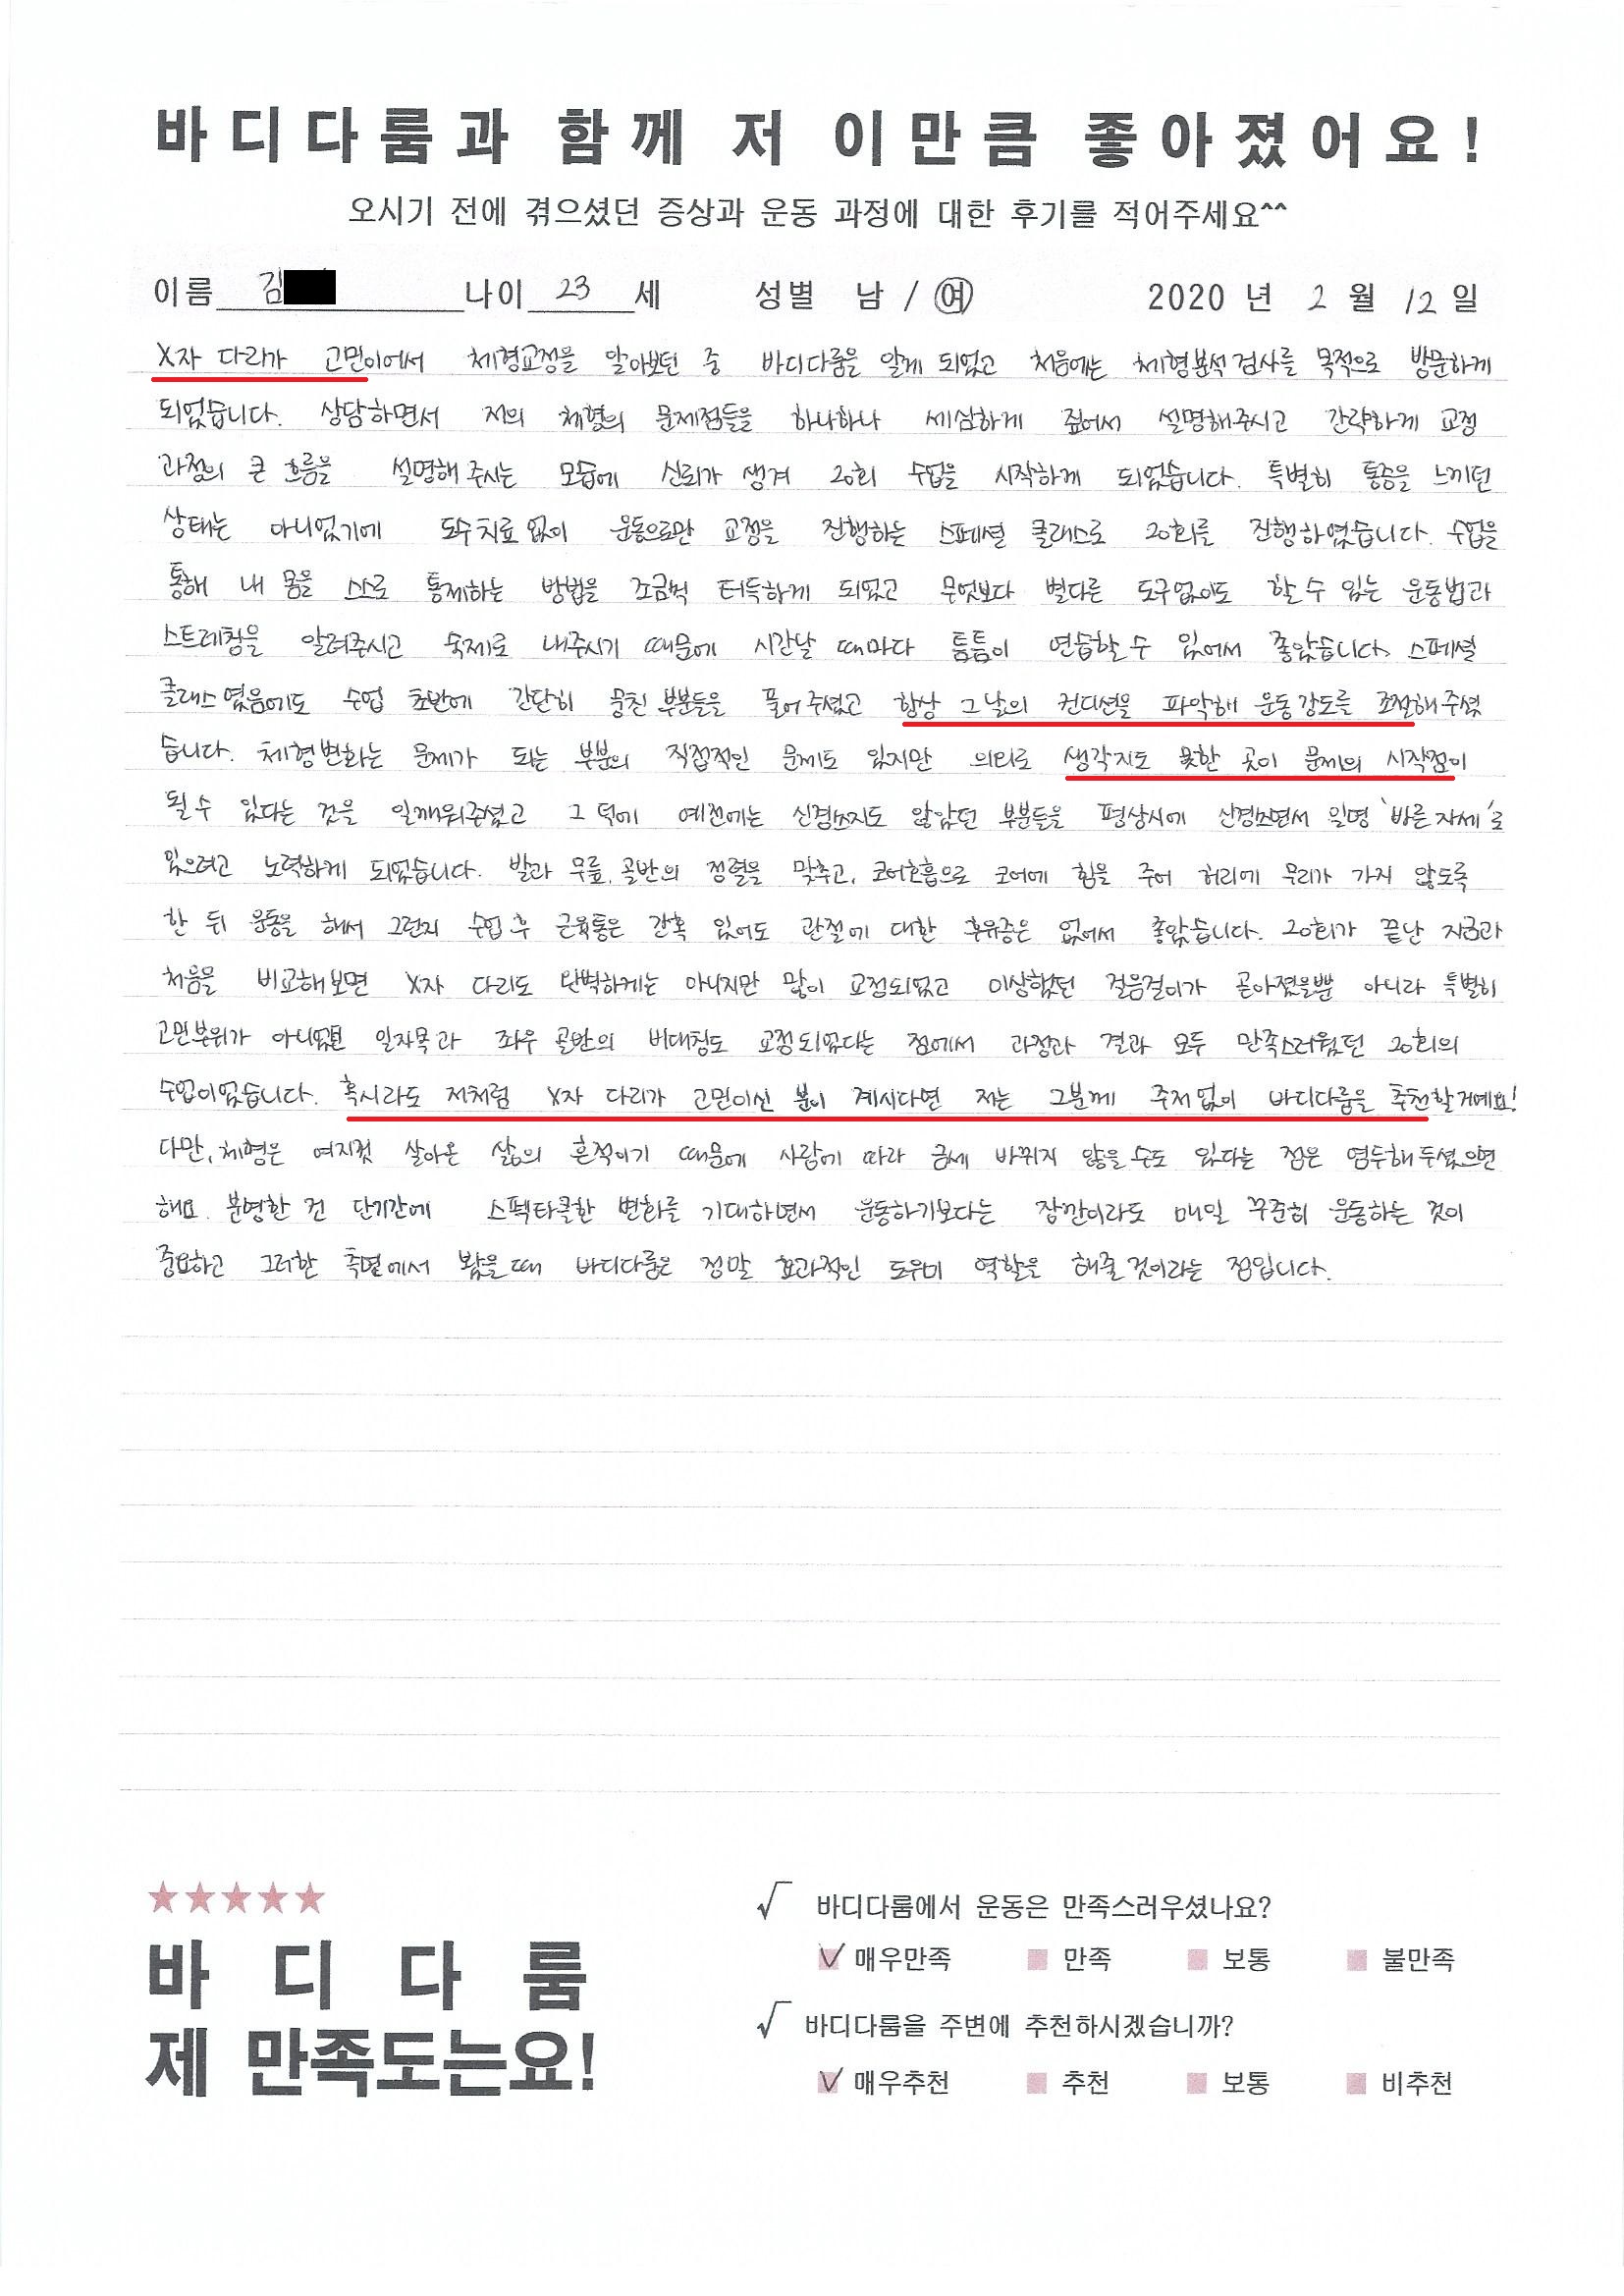 바디다룸과 함께 저 이만큼 좋아졌어요!
오시기 전에 겪으셨던 증상과 운동 과정에 대한 후기를 적어주세요^^
이름 김 나이 23 세 성별 남 / 여 2020 년 2 월 12 일
X자 다리가 고민이어서 체형교정을 알아보던 중 바디다룸을 알게 되었고 처음에는 체형분석 검사를 목적으로 방문하게
되었습니다. 상담하면서 저의 체형의 문제점들을 하나하나 세심하게 짚어서 설명해주시고 간략하게 교정
과정의 큰 흐름을 설명해 주시는 모습에 신뢰가 생겨 20회 수업을 시작하게 되었습니다. 특별히 통증을 느끼던
상태는 아니었기에 도수치료 없이 운동으로만 교정을 진행하는 스페셜 클래스로 20회를 진행하였습니다. 수업을
통해 내 몸을 스스로 통제하는 방법을 조금씩 터득하게 되었고 무엇보다 별다른 도구없이도 할 수 있는 운동법과
스트레칭을 알려주시고 숙제로 내주시기 때문에 시간날 때마다 틈틈이 연습할 수 있어서 좋았습니다. 스페셜
클래스였음에도 수업 초반에 간단히 뭉친 부분들을 풀어주셨고 항상 그날의 컨디션을 파악해 운동강도를 조절해주셨
습니다. 체형변화는 문제가 되는 부분의 직접적인 문제도 있지만 의외로 생각지도 못한 곳이 문제의 시작점이
될 수 있다는 것을 일깨워주셨고 그 덕에 예전에는 신경쓰지도 않았던 부분들을 평상시에 신경쓰면서 일명 '바른자세'로
있으려고 노력하게 되었습니다. 발과 무릎, 골반의 정렬을 맞추고, 코어호흡으로 코어에 힘을 주어 허리에 무리가 가지 않도록
한 뒤 운동을 해서 그런지 수업 후 근육통은 간혹 있어도 관절에 대한 후유증은 없어서 좋았습니다. 20회가 끝난 지금과
처음을 비교해보면 X자 다리도 완벽하게는 아니지만 많이 교정되었고 이상했던 걸음걸이가 곧아졌을뿐 아니라 특별히
고민부위가 아니었던 일자목과 좌우 골반의 비대칭도 교정되었다는 점에서 과정과 결과 모두 만족스러웠던 20회의
수업이었습니다. 혹시라도 저처럼 X자 다리가 고민이신 분이 계시다면 저는 그분께 주저 없이 바디다룸을 추천할거예요!
다만, 체형은 여지껏 살아온 삶의 흔적이기 때문에 사람에 따라 금세 바뀌지 않을 수도 있다는 점은 염두해두셨으면
해요. 분명한 건 단기간에 스펙타클한 변화를 기대하면서 운동하기보다는 잠깐이라도 매일 꾸준히 운동하는 것이
중요하고 그러한 측면에서 봤을 때 바디다룸은 정말 효과적인 도우미 역할을 해줄 것이라는 점입니다.
★★★★★
바디다룸
제 만족도는요!
√ 바디다룸에서 운동은 만족스러우셨나요?
✓ 매우만족 만족 보통 불만족
√ 바디다룸을 주변에 추천하시겠습니까?
✓ 매우추천 추천 보통 비추천